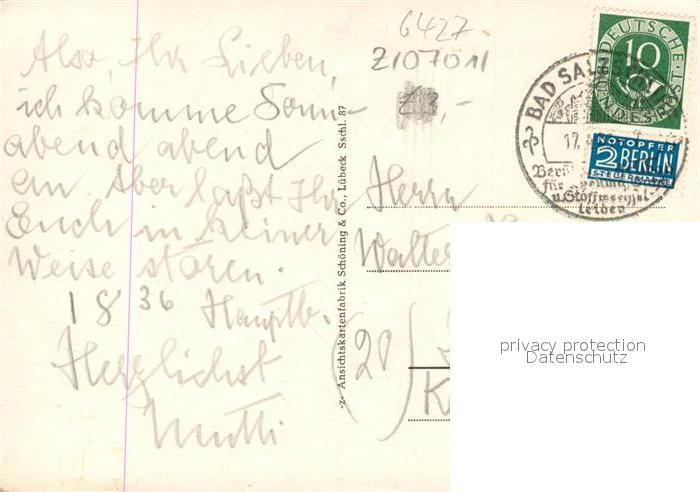 Also, ihr Lieben,
ich komme Sonn-
abend abend
an. Aber laßt Ihr
Euch in keiner
Weise stören.
18 36 Hauptb.
Herzlichst
Mutti
-z- Ansichtskartenfabrik Schöning & Co., Lübeck Sschl. 87
6427
Z107011
DEUTSCHE
10
BAD SAL
17.
für
u. Stoffwechsel-
leiden
NOTOPFER
2 BERLIN
STEUERMARKE
Herrn
Walte
(20)
K
privacy protection
Datenschutz